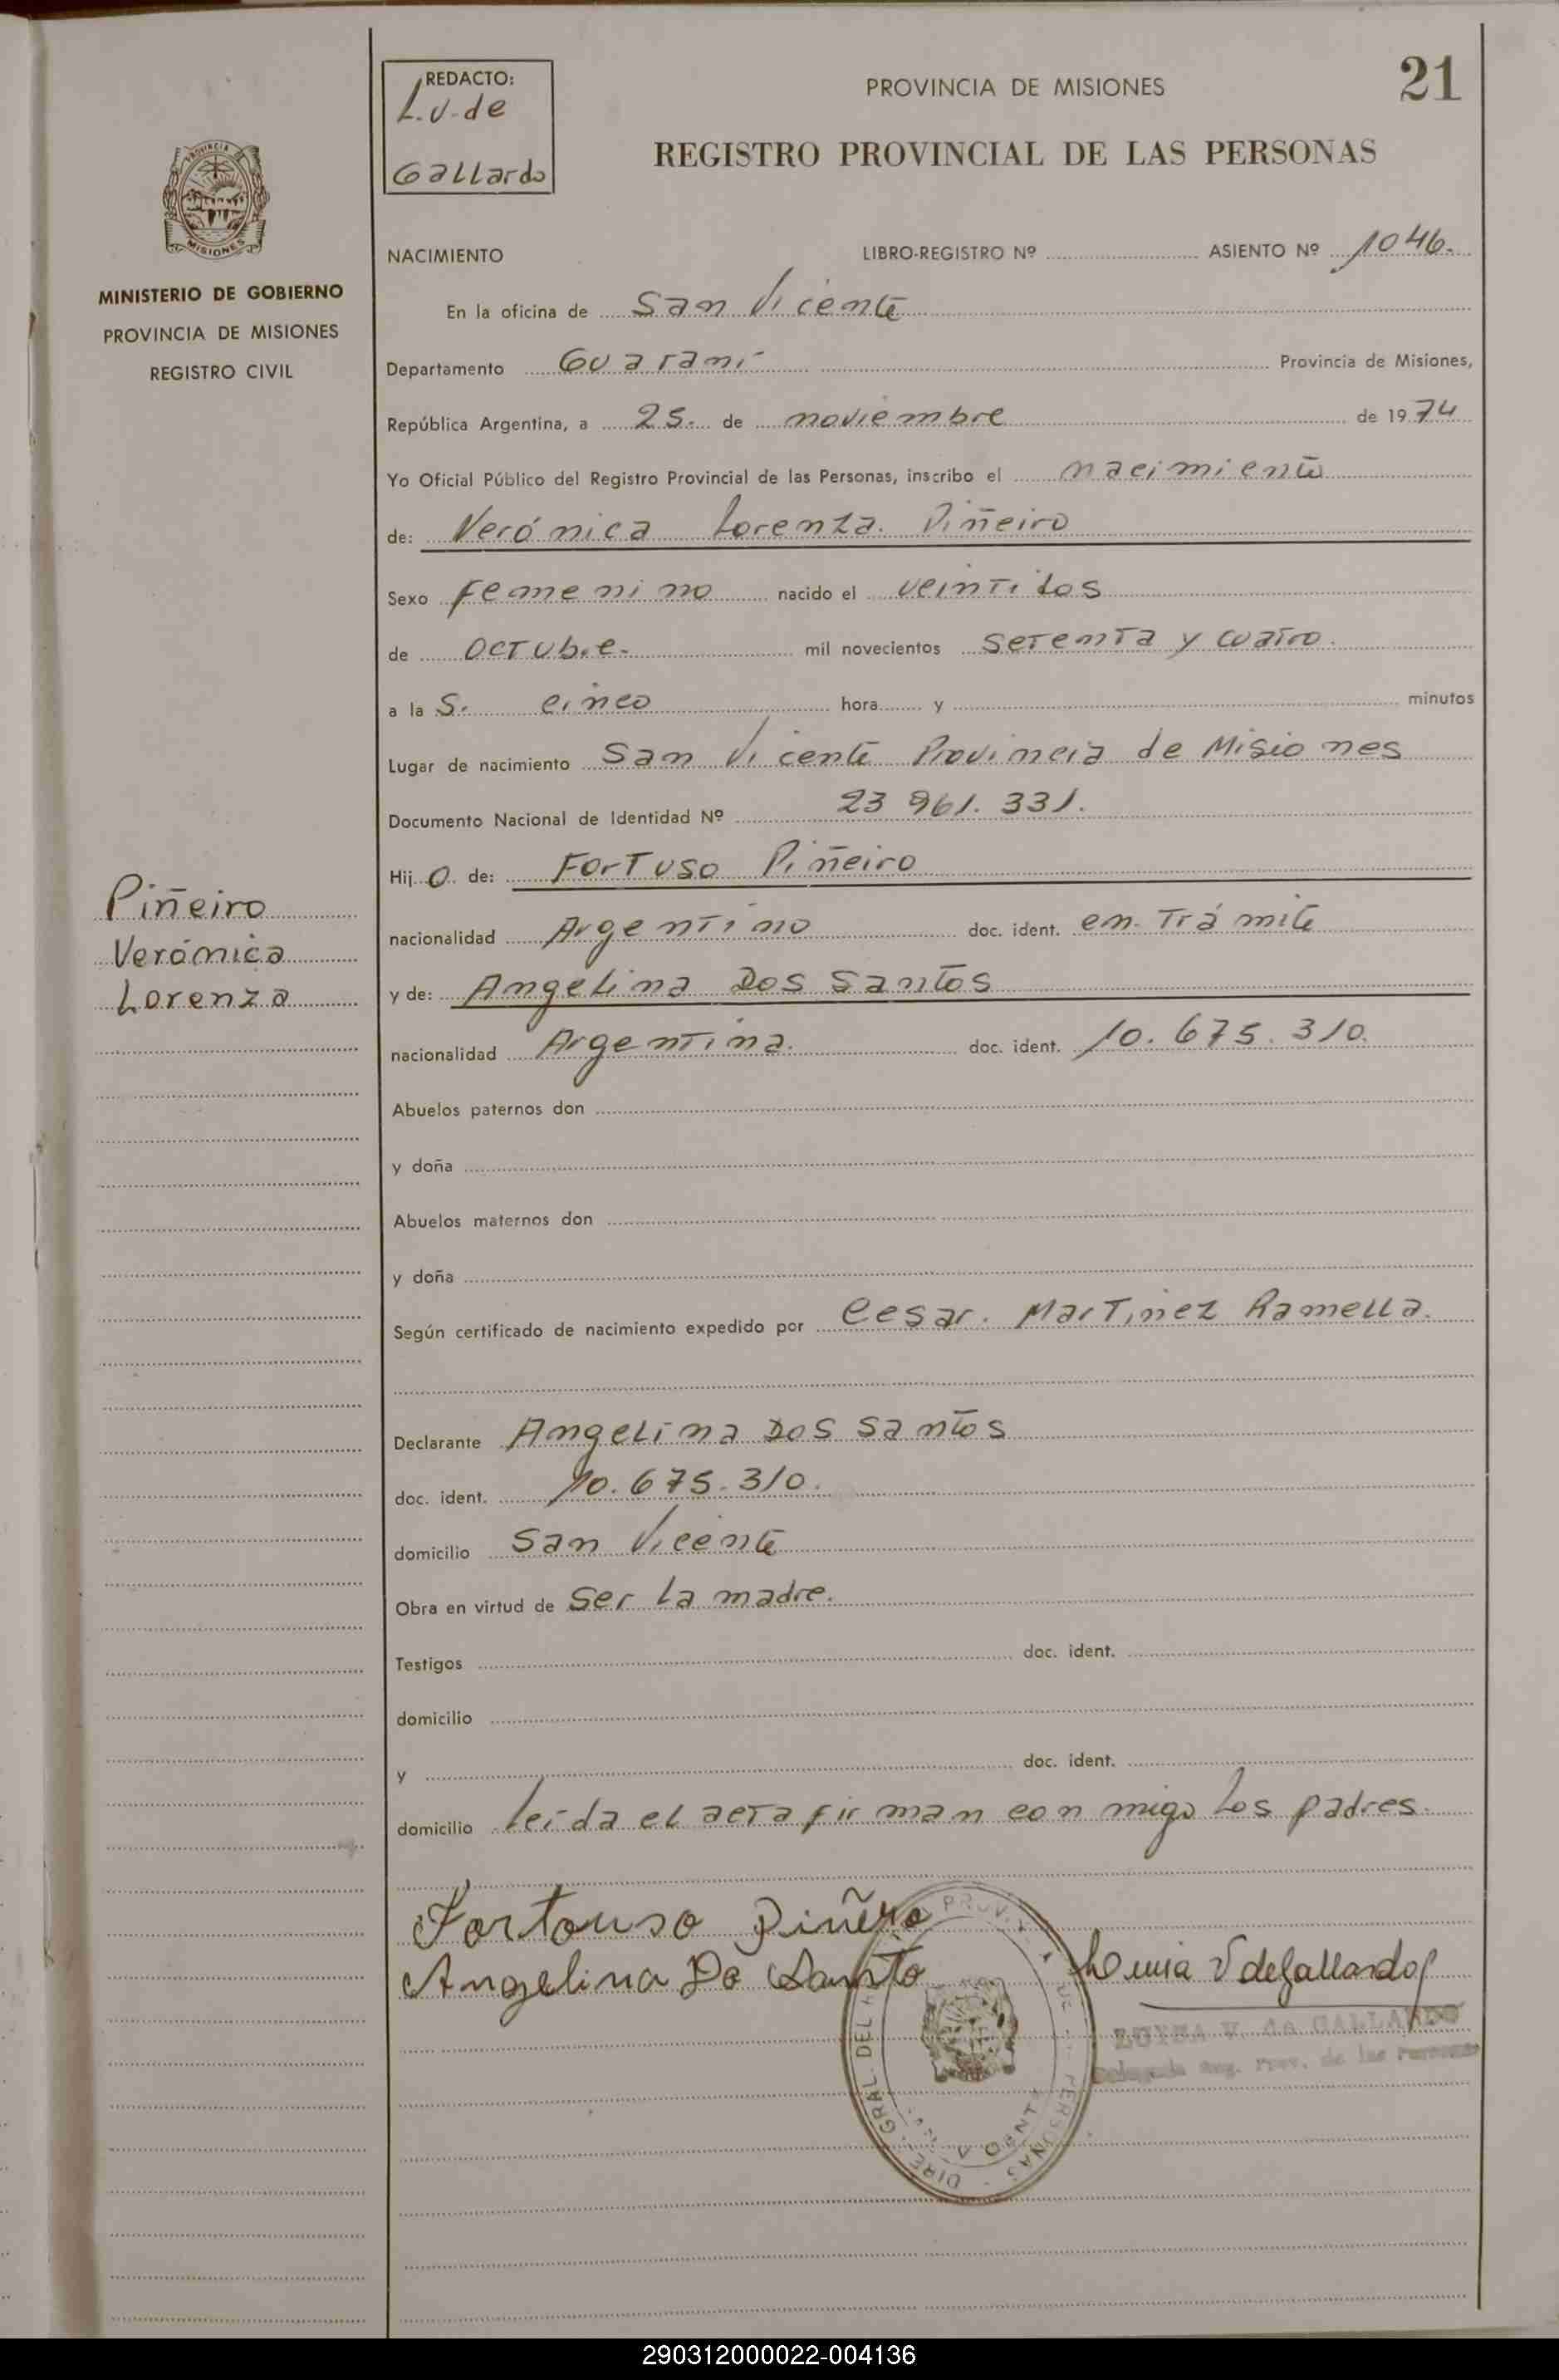 REDACTO:
L. V. de
Gallardo
PROVINCIA DE MISIONES
21
REGISTRO PROVINCIAL DE LAS PERSONAS
PROVINCIA
MISIONES
MINISTERIO DE GOBIERNO
PROVINCIA DE MISIONES
REGISTRO CIVIL
NACIMIENTO LIBRO-REGISTRO Nº ASIENTO Nº 1046.
En la oficina de San Vicente
Departamento Guaraní Provincia de Misiones,
República Argentina, a 25. de noviembre de 1974
Yo Oficial Público del Registro Provincial de las Personas, inscribo el nacimiento
de: Verónica Lorenza. Piñeiro
Sexo Femenino nacido el veintidos
de octubre. mil novecientos setenta y cuatro.
a la s. cinco hora y minutos
Lugar de nacimiento San Vicente Provincia de Misiones
Documento Nacional de Identidad Nº 23 961. 331.
Hij o de: Fortuso Piñeiro
Piñeiro
Verónica
Lorenza
nacionalidad Argentino doc. ident. en Trámite
y de: Angelina Dos Santos
nacionalidad Argentina. doc. ident. 10. 675. 310.
Abuelos paternos don
y doña
Abuelos maternos don
y doña
Según certificado de nacimiento expedido por Cesar. Martinez Ramella.
Declarante Angelina Dos Santos
doc. ident. 10. 675. 310.
domicilio San Vicente
Obra en virtud de ser la madre.
Testigos doc. ident.
domicilio
y doc. ident.
domicilio leída el acta firman conmigo los padres.
Fortouso Piñero
Angelina Do Santo
V de Gallardo
LUISA V. de GALLARDO
Delegada Reg. Prov. de las Personas
DIRE. GRAL. DEL PROV. PERSONAS
290312000022-004136